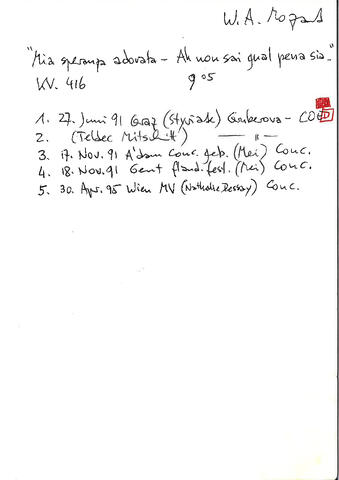 W. A. Mozart
"Mia speranza adorata - Ah non sai qual pena sia"
KV. 416 9'05
1. 27. Juni 91 Graz (Styriarte) Gruberova - COE D
2. (Teldec Mitschnitt) — " —
3. 17. Nov. 91 A'dam Conc. geb. (Mei) Conc.
4. 18. Nov. 91 Gent fland. fest. (Mei) Conc.
5. 30. Apr. 95 Wien MV (Nathalie Dessay) Conc.